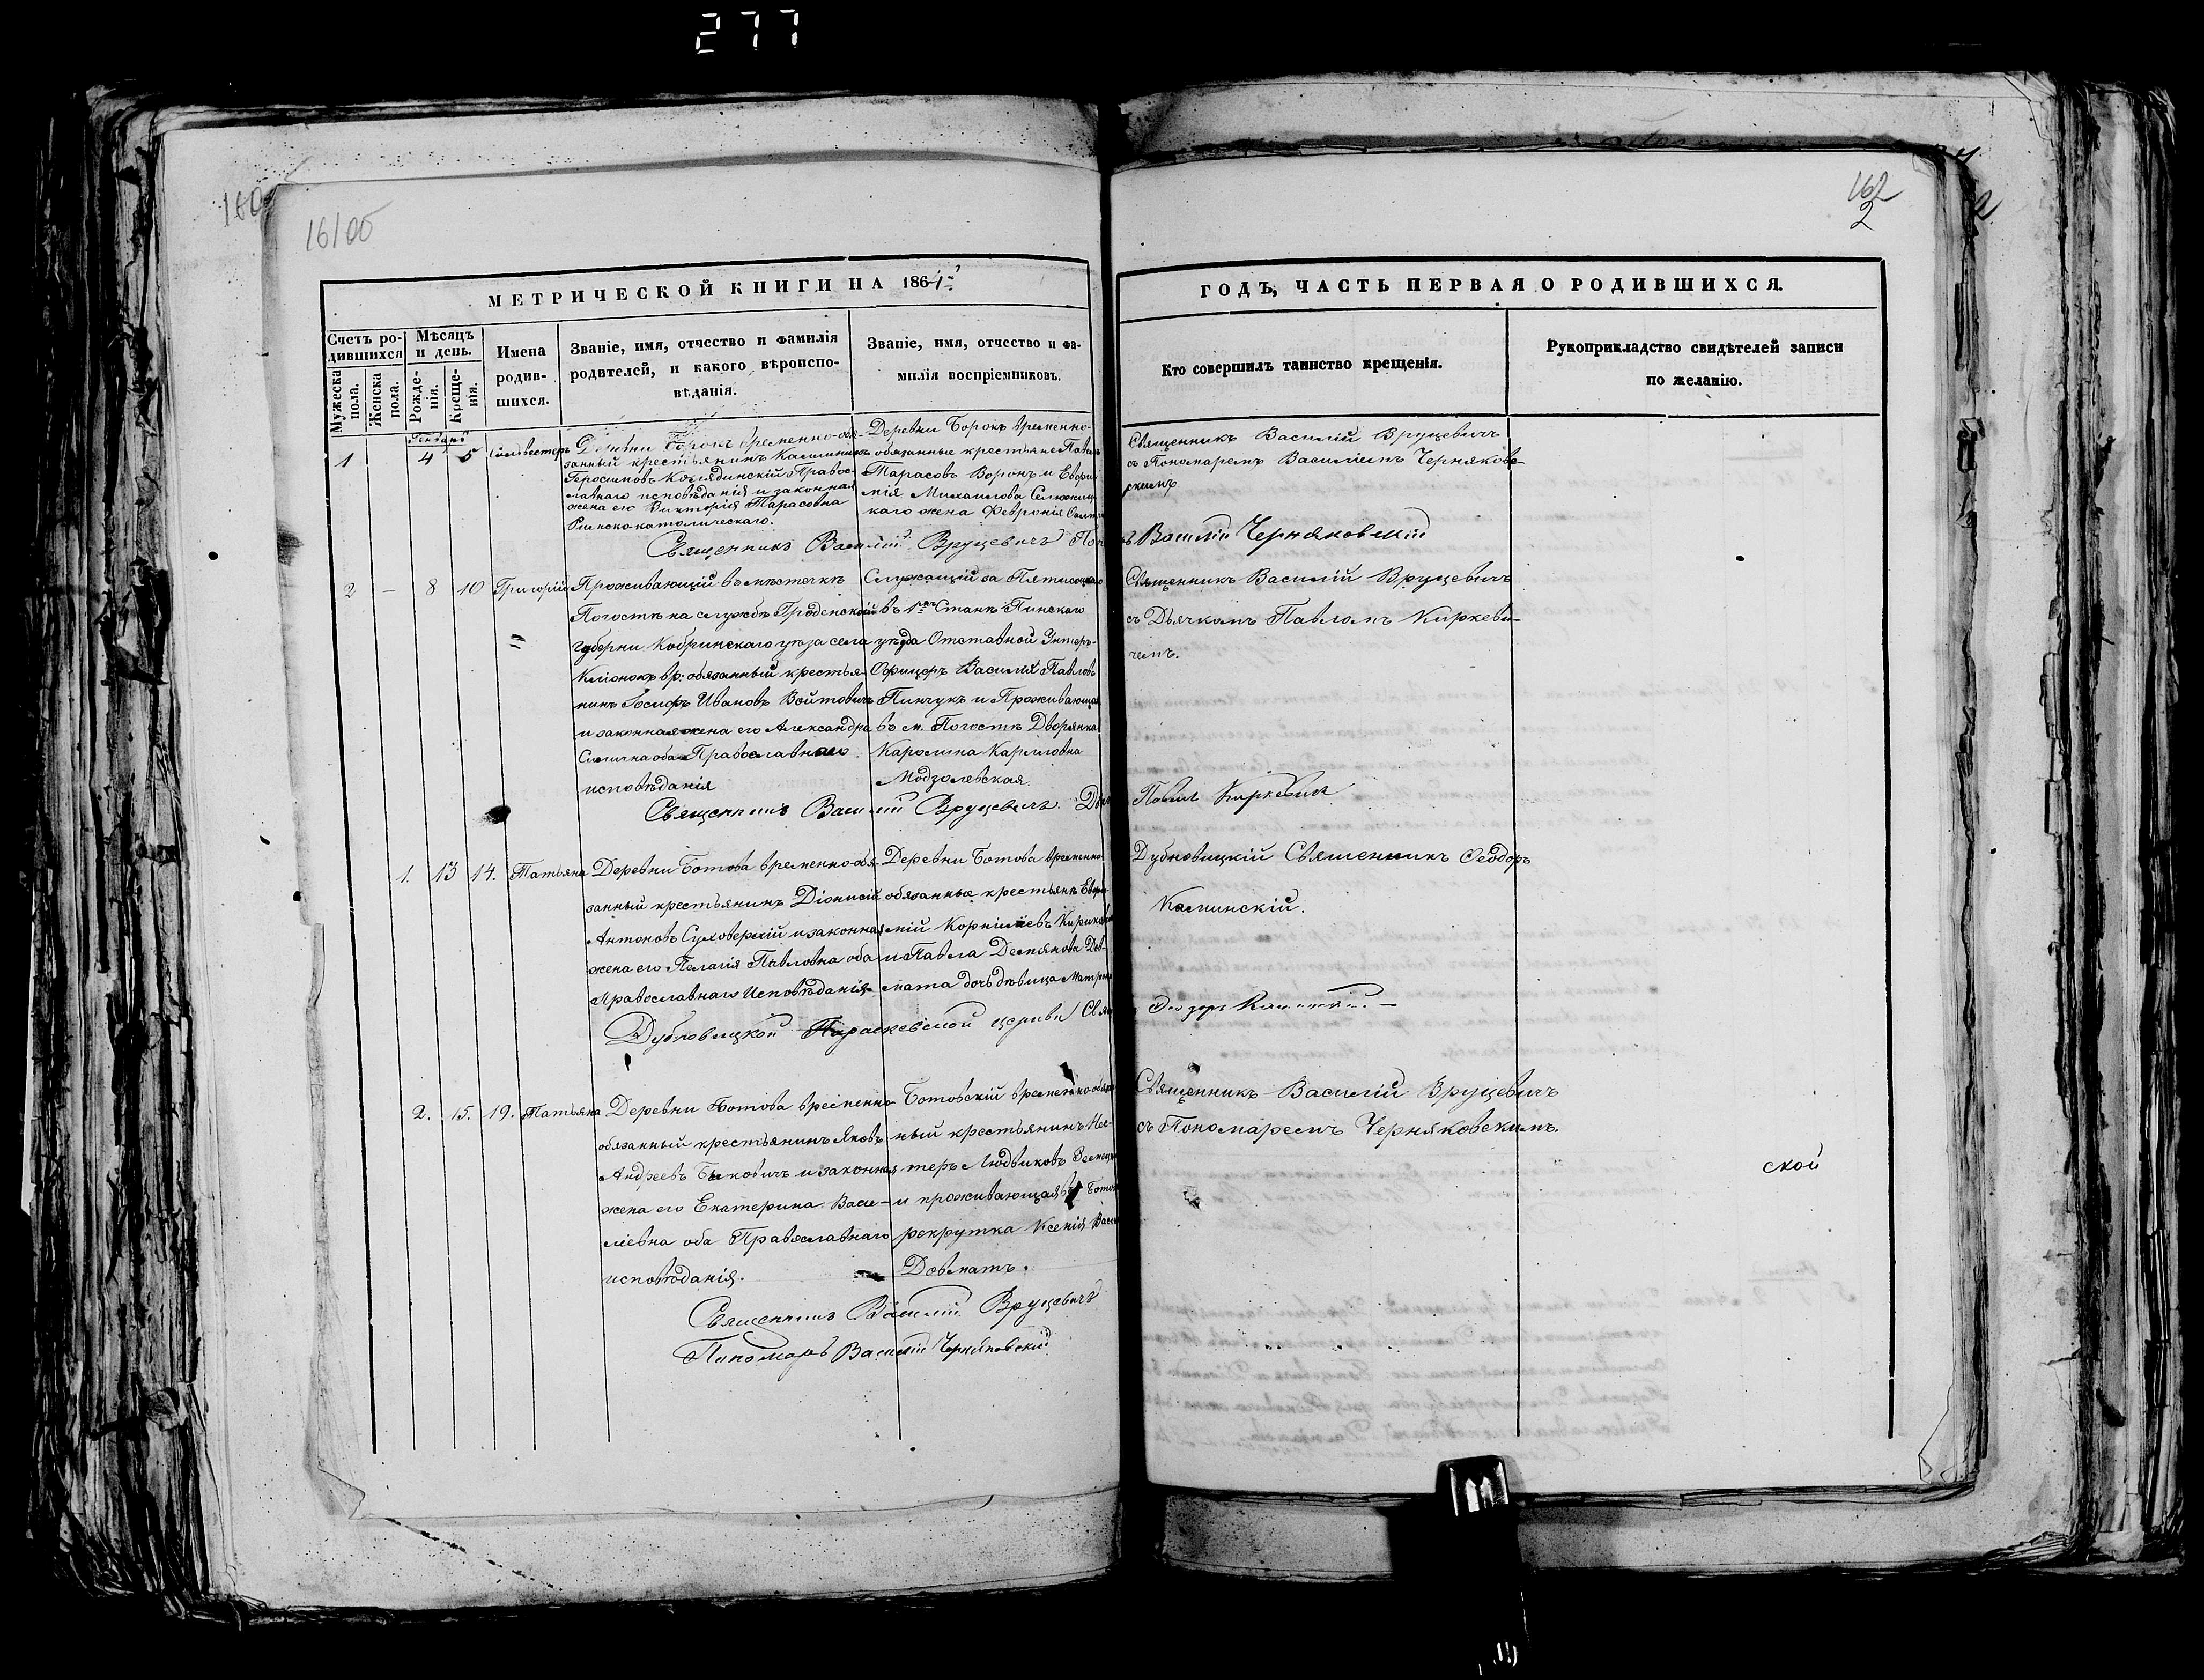 277
160
161об
162
2
МЕТРИЧЕСКОЙ КНИГИ НА 1864
ГОДЪ, ЧАСТЬ ПЕРВАЯ О РОДИВШИХСЯ.
Счетъ родившихся
Мужеска пола.
Женска пола.
Мѣсяцъ и день.
Рожденія.
Крещенія.
Имена родившихся.
Званіе, имя, отчество и фамилія
родителей, и какого вѣроиспо-
вѣданія.
Званіе, имя, отчество и фа-
милія воспріемниковъ.
Кто совершилъ таинство крещенія.
Рукоприкладство свидѣтелей записи
по желанію.
Генварь
1 4 5 Сильвестеръ
Деревни Борокъ временно-обя-
занный крестьянинъ
православнаго исповѣданія и законная
жена его Викторія Тарасовна
Римско-католическаго.
Деревни Борокъ временно-
обязанные крестьяне Павелъ
Тарасовъ Воронъ и
Михаилова
каго жена Февронія
Священникъ Василій Вруцевичъ
съ Пономаремъ Василіемъ Черняков-
скимъ
Священникъ Василій Вруцевичъ
Василій Черняковскій
2 — 8 10 Григорій
Проживающій въ мѣстечкѣ
Погостѣ на службѣ Гродненской
губерни Кобринскаго уѣзда села
вр: обязанный крестья-
нинъ Іосифъ Ивановъ Войтовичъ
и законная жена его Александра
оба Православнаго
исповѣданія
Служащій за
въ 1мъ Станѣ Пинскаго
уѣзда Отставной Унтеръ-
Офицеръ Василій Павловъ
Пинчукъ и Проживающая
въ м. Погостѣ Дворянка
Каролина Карловна
Модзолевская.
Священникъ Василій Вруцевичъ
съ Дьячкомъ Павломъ Киркеви-
чемъ.
Священникъ Василій Вруцевичъ.
Павелъ Киркевичъ
1. 13 14. Татьяна
Деревни Ботова временно-обя-
занный крестьянинъ Діонисій
Антоновъ Суховерхій и законная
жена его Пелагія Павловна оба
Православнаго Исповѣданія
Деревни Ботова временно-
обязанные крестьяне
Корніліевъ
и Павла Демянова Дов-
ната дочь дѣвица
Дубновицкій Священникъ Ѳеодоръ
Каминскій.
Дубновицкой Параскевской церкви
2. 15. 19. Татьяна
Деревни Ботова временно-
обязанный крестьянинъ Яковъ
Андреевъ и законная
жена его Екатерина Васи-
ліевна оба Православнаго
исповѣданія.
Ботовскій временно-обязан-
ный крестьянинъ Нес-
теръ Людвиковъ
и проживающая въ
рекрутка Ксенія
Довнатъ.
Священникъ Василій Вруцевичъ
съ Пономаремъ Черняковскимъ.
ской
Священникъ Василій Вруцевичъ
Пономарь Василій Черняковскій